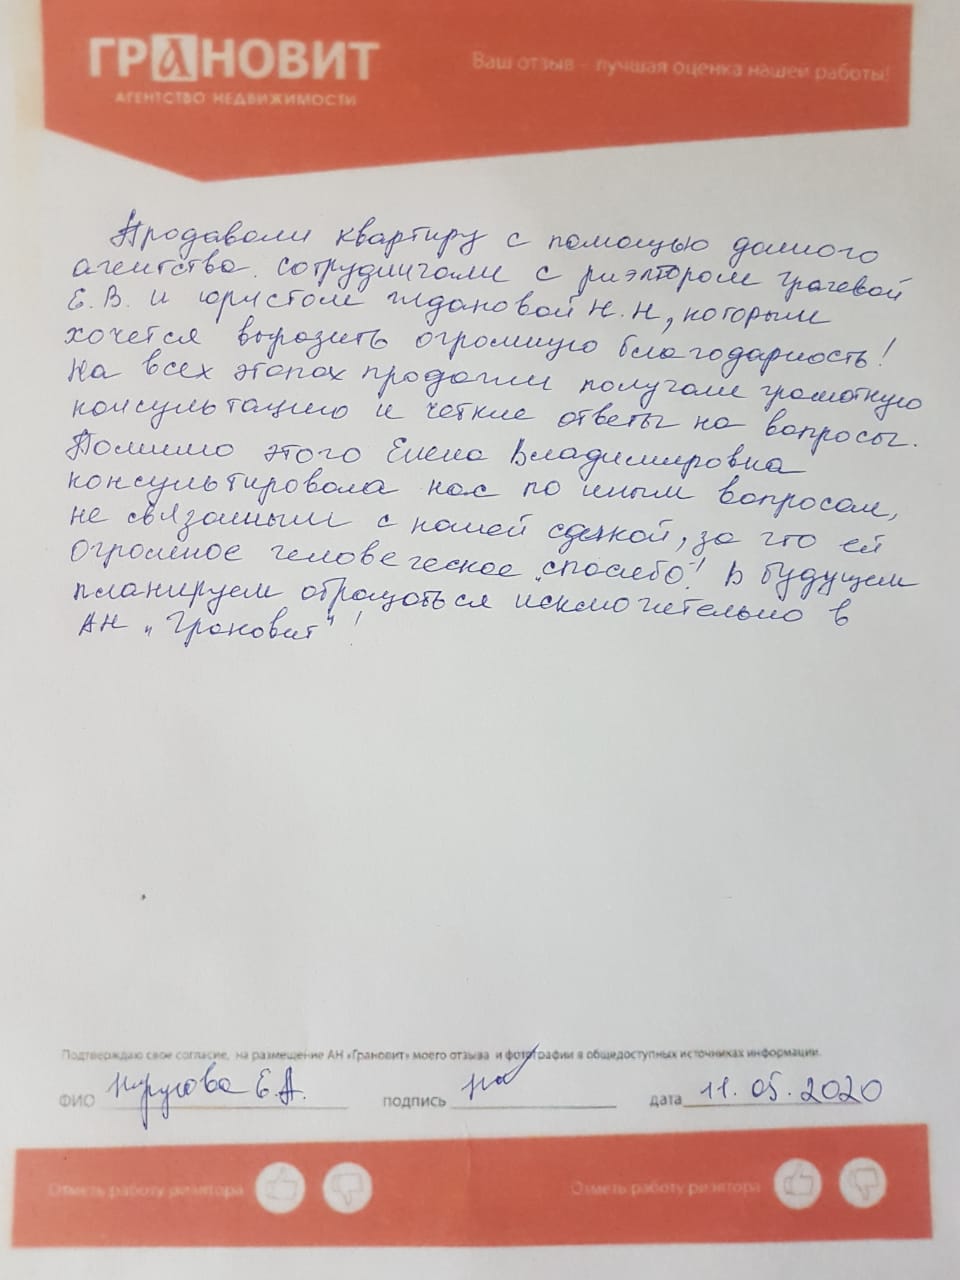 ГРАНОВИТ
АГЕНТСТВО НЕДВИЖИМОСТИ
Ваш отзыв - лучшая оценка нашей работы!
Продавали квартиру с помощью данного
агентства. Сотрудничали с риэлтором Грачевой
Е.В. и юристом Ждановой Н.Н, которым
хочется выразить огромную благодарность!
На всех этапах продажи получали грамотную
консультацию и четкие ответы на вопросы.
Помимо этого Елена Владимировна
консультировала нас по иным вопросам,
не связанным с нашей сделкой, за что ей
огромное человеческое "спасибо"! В будущем
планируем обращаться исключительно в
АН "Грановит"!
Подтверждаю свое согласие, на размещение АН «Грановит» моего отзыва и фотографии в общедоступных источниках информации.
ФИО Е.А. подпись дата 11.05.2020
Отметь работу риэлтора
Отметь работу риэлтора